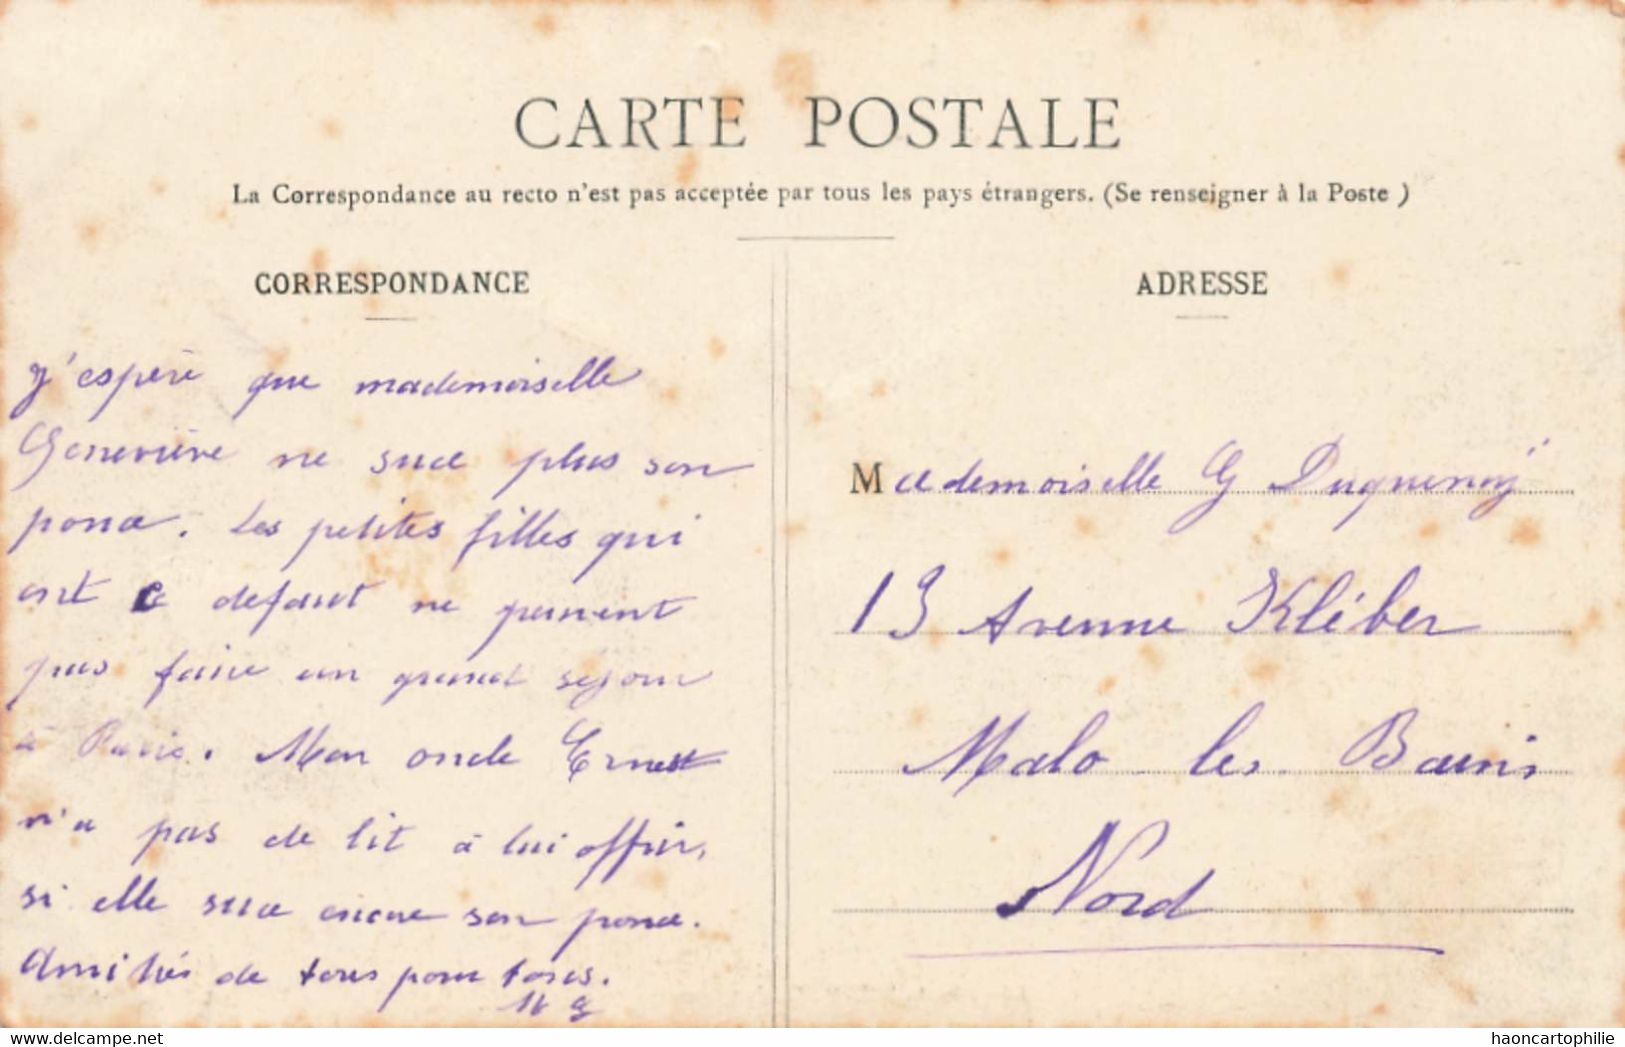 CARTE POSTALE
La Correspondance au recto n'est pas acceptée par tous les pays étrangers. (Se renseigner à la Poste)
CORRESPONDANCE
J'espère que mademoiselle
Geneviève ne suce plus son
pouce. Les petites filles qui
ont ce defaut ne peuvent
pas faire un grand sejour
à Paris. Mon oncle Ernest
n'a pas de lit à lui offrir,
si elle suce encore son pouce.
Amitiés de tous pour tous.
ADRESSE
Mademoiselle G Duquenoy
13 Avenue Kléber
Malo les Bains
Nord
www.delcampe.net
haoncartophilie